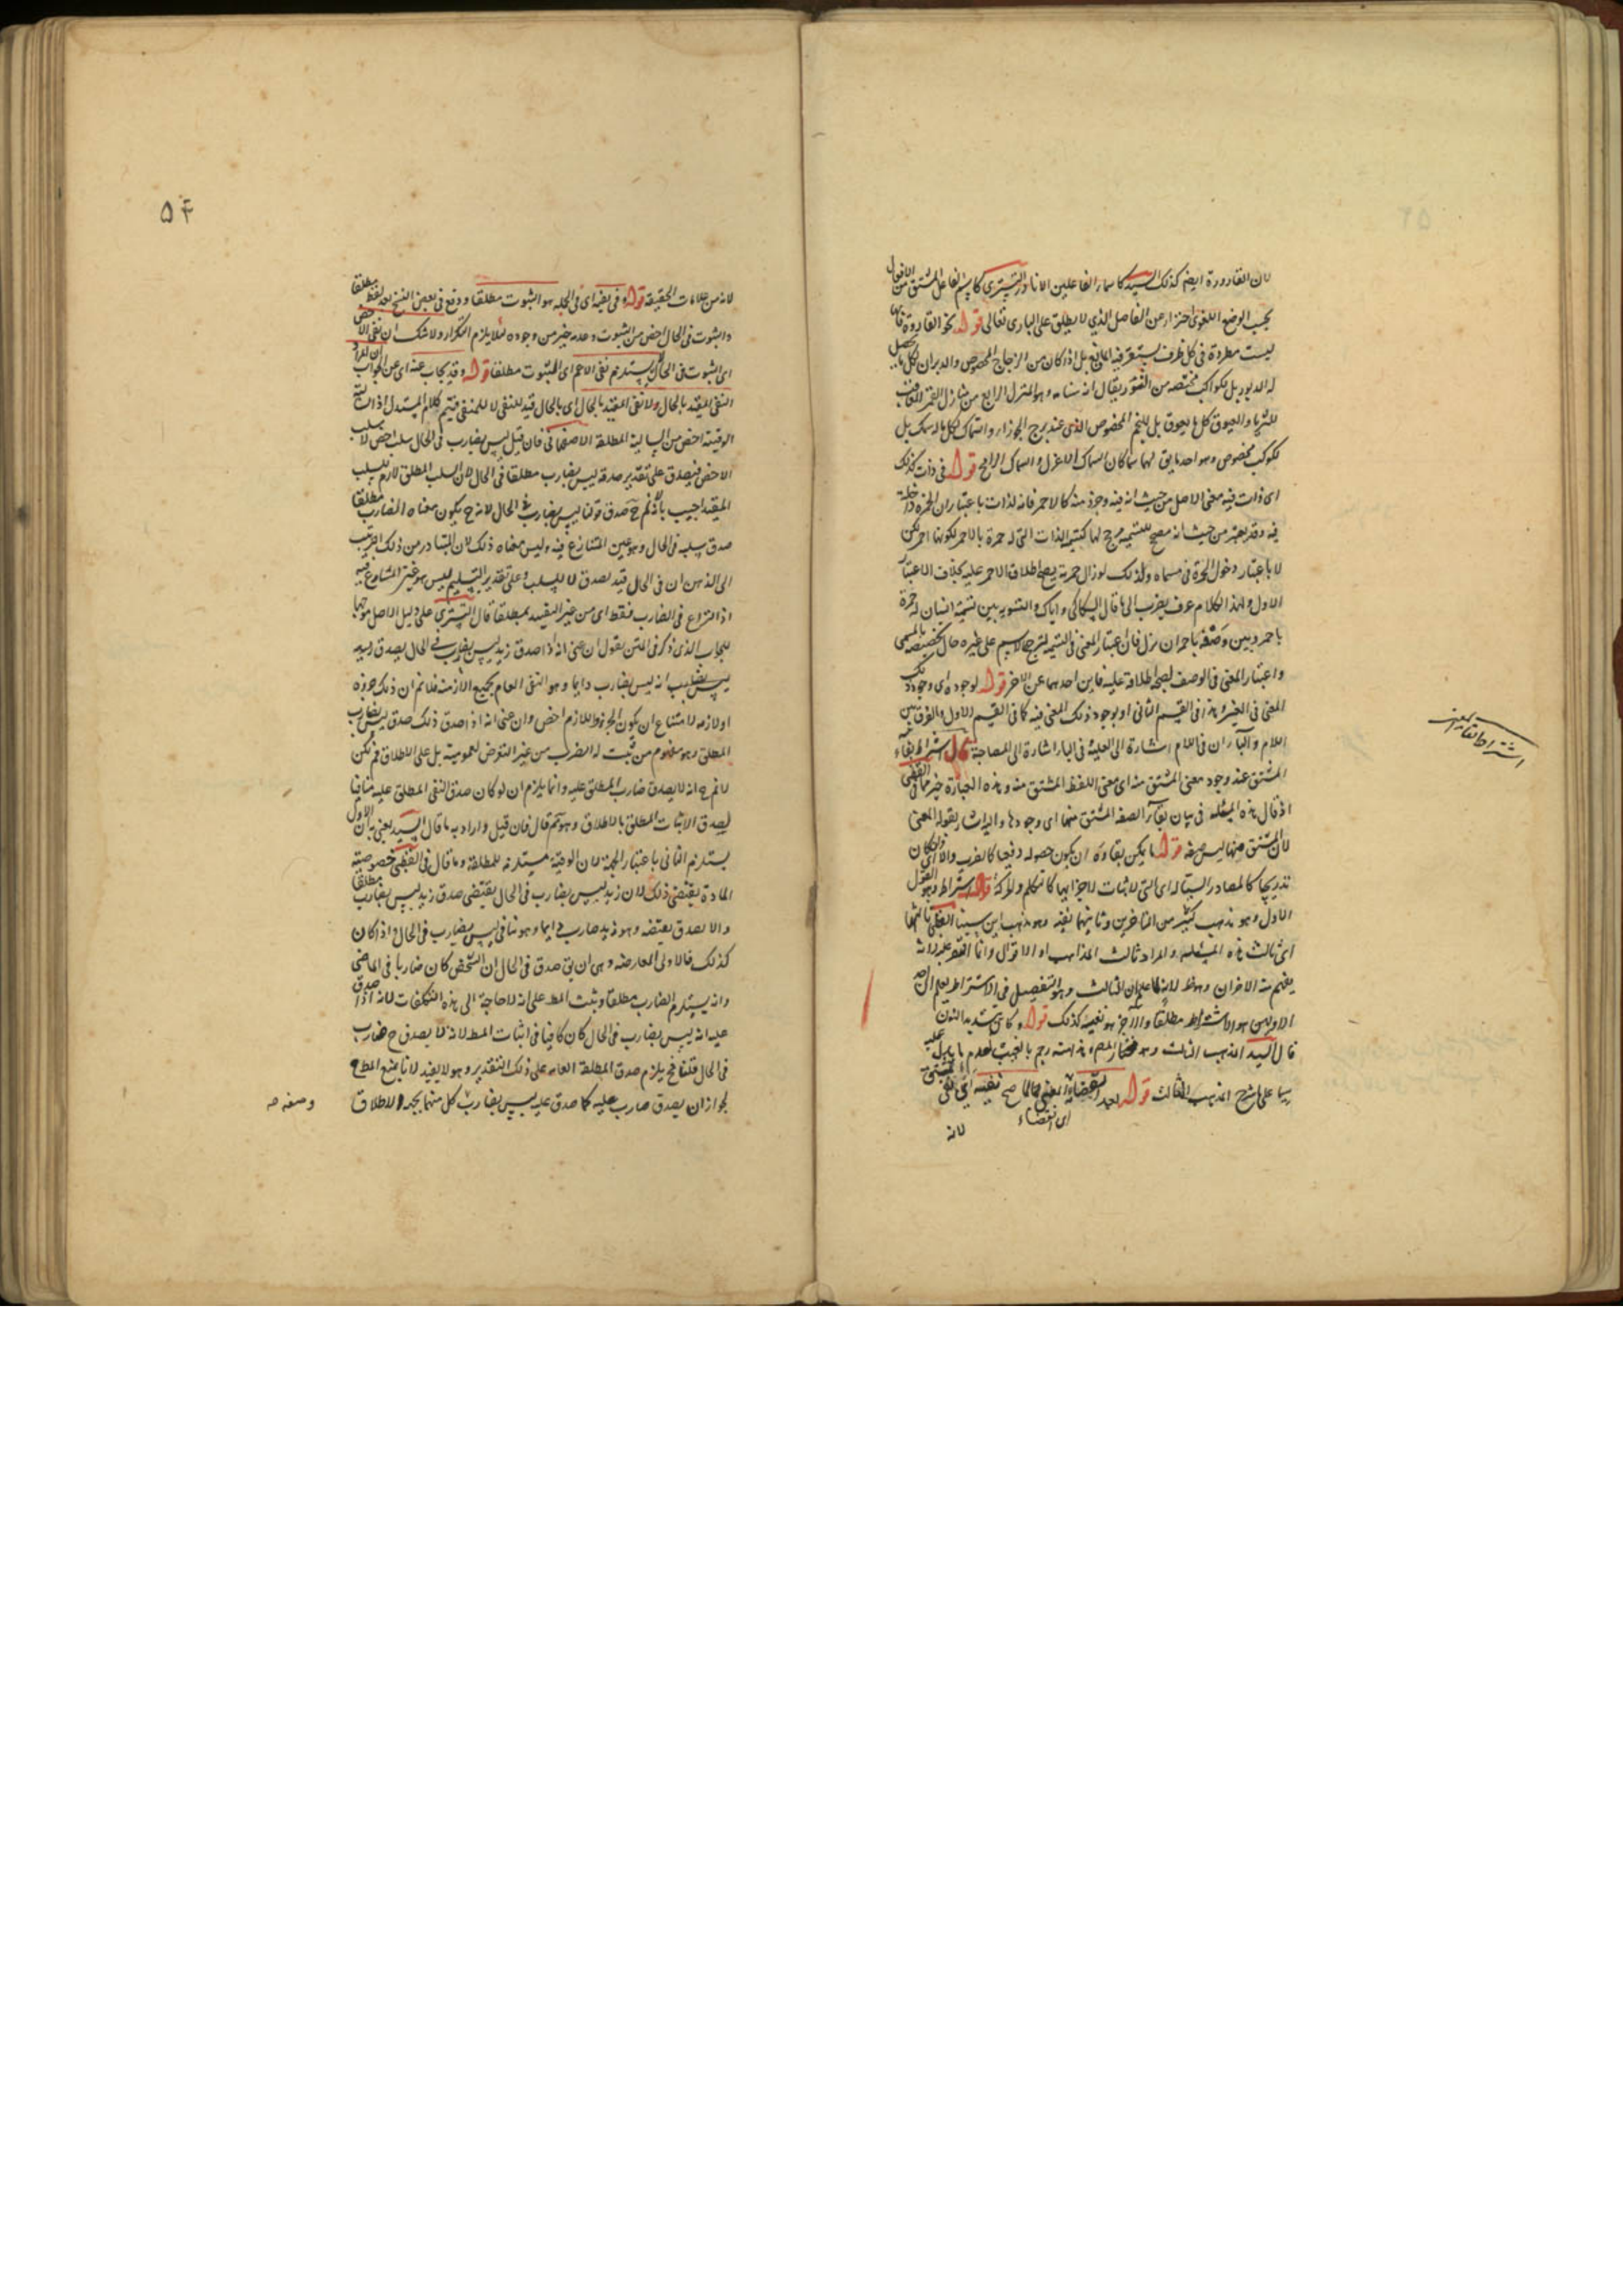 لان القارورة ايضا كذلك السيد كاسماء الفاعلين الا نادرا التستري كاسم الفاعل المشتق من
بحسب الوضع اللغوى احتراز من الفاضل الذي لا يطلق على البارى تعالى قوله نحو القارورة فانها
ليست مطردة فى كل ظرف يستقر فيه المائع بل اذا كان من الزجاج المخصوص والدبران لكل ما
له الدبور بل بكواكب مختصة من الثور يقال انه سنامه وهو المنزل الرابع من منازل القمر
للثريا والعيوق كل ما يعوق بل للنجم المخصوص الذى عند برج الجوزاء والسماك لكل ما له سمك بل
لكوكب مخصوص وهو احد ما يق لهما سماكان السماك الاعزل والسماك الرامح قوله فى ذات كذلك
اى ذات فيه معنى الاصل من حيث انه فيه وجزؤ منه كالاحمر فانه لذات باعتبار ان الحمرة داخلة
فيه وقد يعتبر من حيث انه مصحح للتسمية مرجح لها كتسمية الذات التى له حمرة بالاحمر لكونها احمر لكن
لا باعتبار دخول الحمرة فى مسماه ولذلك لو زال حمرته يصح اطلاق الاحمر عليه بخلاف الاعتبار
الاول ولهذا الكلام عرف يقرب الى ما قال السكاكى واياك والتسوية بين تسمية انسان له حمرة
باحمر وبين وصفه باحمر ان تزل فان اعتبار المعنى فى التسمية لترجيح الاسم على غيره حال تخصيصه بالمسمى
واعتبار المعنى فى الوصف لصحة اطلاقه عليه فاين احدهما عن الاخر قوله لوجوده اى وجود ذلك
المعنى فى الغير وهذا فى القسم الثانى او بوجود ذلك المعنى فيه كما فى القسم الاول والفرق بين
اللام والباء ان فى اللام اشارة الى العلية فى الباء اشارة الى المصاحبة قال اشتراط بقاء
المشتق عند وجود معنى المشتق منه اى معنى اللفظ المشتق منه وهذه العبارة خير مما فى
اذ قال هذه المسئلة فى بيان بقاء الصفة المشتق منها اى وجودها واليه اشار بقوله المعنى
لان المشتق منها ليس صفة قوله ما يمكن بقاؤه ان يكون حصوله دفعيا كالضرب والا اى
تدريجيا كالمصادر السيالة اى التى لا ثبات لاجزائها كالتكلم والحركة قوله اشتراط وهو القول
الاول وهو مذهب كثير من المتأخرين وثانيهما نفيه وهو مذهب ابن سينا القطبى ثالثها
اى ثالث هذه المسئلة والمراد ثالث المذاهب او الاقوال وانما اقتصر عليه لانه
يفهم منه الاخران وهو ظ لانه لما علم ان الثالث وهو التفصيل فى الاشتراط يعلم ان
الاولين هو الاشتراط مطلقا والاخر هو نفيه كذلك قوله وكان بتشديد النون
قال السيد المذهب الثالث وهو مختار المص هذا منه رجم بالغيب لعدم ما يدل عليه
سيما على شرح المذهب الثالث قوله بعد انقضائه المعنى لما صح نفيه اى نفى
اى انقضاء
لانه
اشتراط بقاء المعنى
۵۴
لانه من علامات الحقيقة قوله وفى نفيه اى فى الجملة هو الثبوت مطلقا ووقع فى بعض النسخ بعد لفظ مطلقا
والثبوت فى الحال اخص من الثبوت وعدمه خير من وجوده لئلا يلزم التكرار ولا شك ان نفى الاخص
اى الثبوت فى الحال لا يستلزم نفى الاعم اى الثبوت مطلقا قوله وقد يجاب عنه اى عن الجواب ان المراد
النفى المقيد بالحال ولا نفى المقيد بالحال اى بالحال قيد للنفى لا للمنفى فيتم كلام المستدل اذ السالبة
الوقتية اخص من السالبة المطلقة الاصفهانى فان قيل ليس بضارب فى الحال سلب اخص لا سلب
الاخص فيصدق على تقدير صدقه ليس بضارب مطلقا فى الحال لان السلب المطلق لازم للسلب
المقيد اجيب بانا لانم ح صدق قولنا ليس بضارب فى الحال لانه ح يكون معناه الضارب مطلقا
صدق سلبه فى الحال وهو عين المتنازع فيه وليس معناه ذلك لان المتبادر من ذلك التركيب
الى الذهن ان فى الحال قيد يصدق لا للسلب وعلى تقدير التسليم ليس هو غير المتنازع فيه
اذ النزاع فى الضارب فقط اى من غير التقييد بمطلقا قال التستري على دليل الاصل موجها
للجواب الذى ذكر فى المتن يقول ان عنى انه اذا صدق زيد ليس بضارب فى الحال يصدق زيد
ليس بضارب انه ليس بضارب دايما وهو النفى العام بجميع الازمنة فلانم ان ذلك جزؤه
او لازمه لامتناع ان يكون الجزؤ واللازم اخص وان عنى انه اذا صدق ذلك صدق ليس بضارب
المطلق وهو مفهوم من ثبت له الضرب من غير التعرض للعمومية بل على الاطلاق فم لكن
لانم ح انه لا يصدق ضارب المطلق عليه وانما يلزم ان لو كان صدق النفى المطلق عليه منافيا
لصدق الاثبات المطلق بالاطلاق وهو مم قال فان قيل واراد به ما قال السيد يعنى به ان الاول
يستلزم الثانى باعتبار الجهة لان الوقتية مستلزمة للمطلقة وما قال فى القطبى خصوصية
المادة يقتضى ذلك لان زيد ليس بضارب فى الحال يقتضى صدق زيد ليس بضارب مطلقا
والا يصدق نقيضه وهو زيد ضارب دايما وهو ينافى ليس بضارب فى الحال واذا كان
كذلك فالاولى المعارضة وهى ان يق صدق فى الحال ان الشخص كان ضاربا فى الماضى
وانه يستلزم الضارب مطلقا ويثبت المط على انه لا حاجة الى هذه التكلفات لانه اذا صدق
عليه انه ليس بضارب فى الحال كان كافيا فى اثبات المط لانه لا يصدق ح ضارب
فى الحال قلنا فح يلزم صدق المطلقة العامه على ذلك التقدير وهو لا يفيد لانا نمنع المط ح
لجواز ان يصدق ضارب عليه كما صدق عليه ليس بضارب كل منهما بمجرد الاطلاق